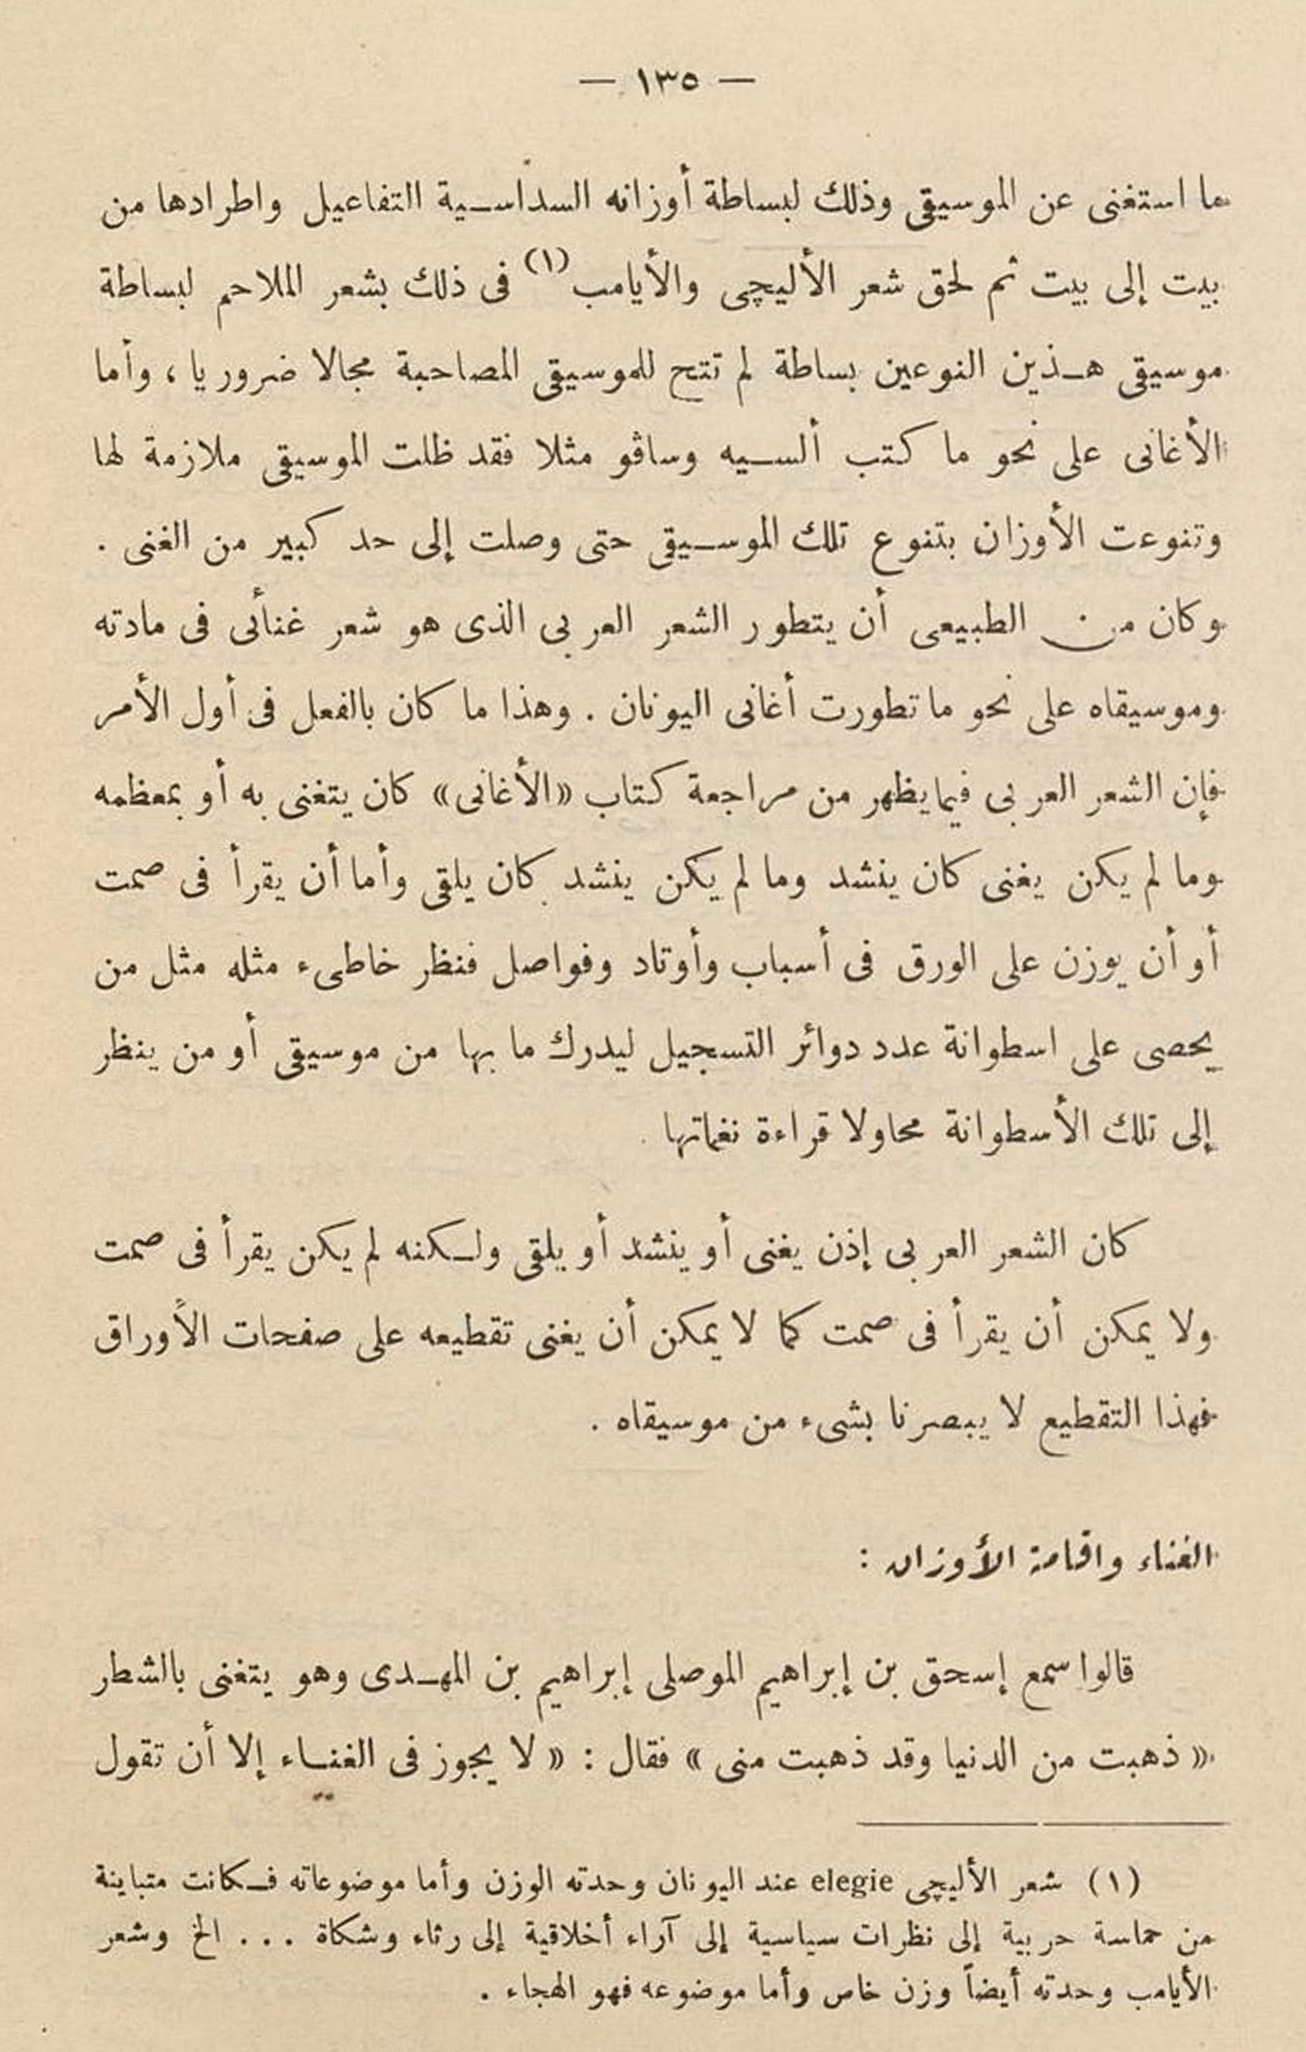 — ١٣٥ —
ما استغنى عن الموسيقى وذلك لبساطة أوزانه السداسية التفاعيل واطرادها من
بيت إلى بيت ثم لحق شعر الأليچى والأيامب (١) فى ذلك بشعر الملاحم لبساطة
موسيقى هذين النوعين بساطة لم تتح للموسيقى المصاحبة مجالا ضروريا ، وأما
الأغانى على نحو ما كتب ألسيه وسافو مثلا فقد ظلت الموسيقى ملازمة لها
وتنوعت الأوزان بتنوع تلك الموسيقى حتى وصلت إلى حد كبير من الغنى .
وكان من الطبيعى أن يتطور الشعر العربى الذى هو شعر غنائى فى مادته
وموسيقاه على نحو ما تطورت أغانى اليونان . وهذا ما كان بالفعل فى أول الأمر
فإن الشعر العربى فيما يظهر من مراجعة كتاب «الأغانى» كان يتغنى به أو بمعظمه
وما لم يكن يغنى كان ينشد وما لم يكن ينشد كان يلقى وأما أن يقرأ فى صمت
أو أن يوزن على الورق فى أسباب وأوتاد وفواصل فنظر خاطىء مثله مثل من
يحصى على اسطوانة عدد دوائر التسجيل ليدرك ما بها من موسيقى أو من ينظر
إلى تلك الأسطوانة محاولا قراءة نغماتها .
كان الشعر العربى إذن يغنى أو ينشد أو يلقى ولكنه لم يكن يقرأ فى صمت
ولا يمكن أن يقرأ فى صمت كما لا يمكن أن يغنى تقطيعه على صفحات الأوراق
فهذا التقطيع لا يبصرنا بشىء من موسيقاه .
الغناء واقامة الأوزان :
قالوا سمع إسحق بن إبراهيم الموصلى إبراهيم بن المهدى وهو يتغنى بالشطر
« ذهبت من الدنيا وقد ذهبت منى » فقال : « لا يجوز فى الغناء إلا أن تقول
(١) شعر الأليچى elegie عند اليونان وحدته الوزن وأما موضوعاته فكانت متباينة
من حماسة حربية إلى نظرات سياسية إلى آراء أخلاقية إلى رثاء وشكاة ... الخ وشعر
الأيامب وحدته أيضاً وزن خاص وأما موضوعه فهو الهجاء .